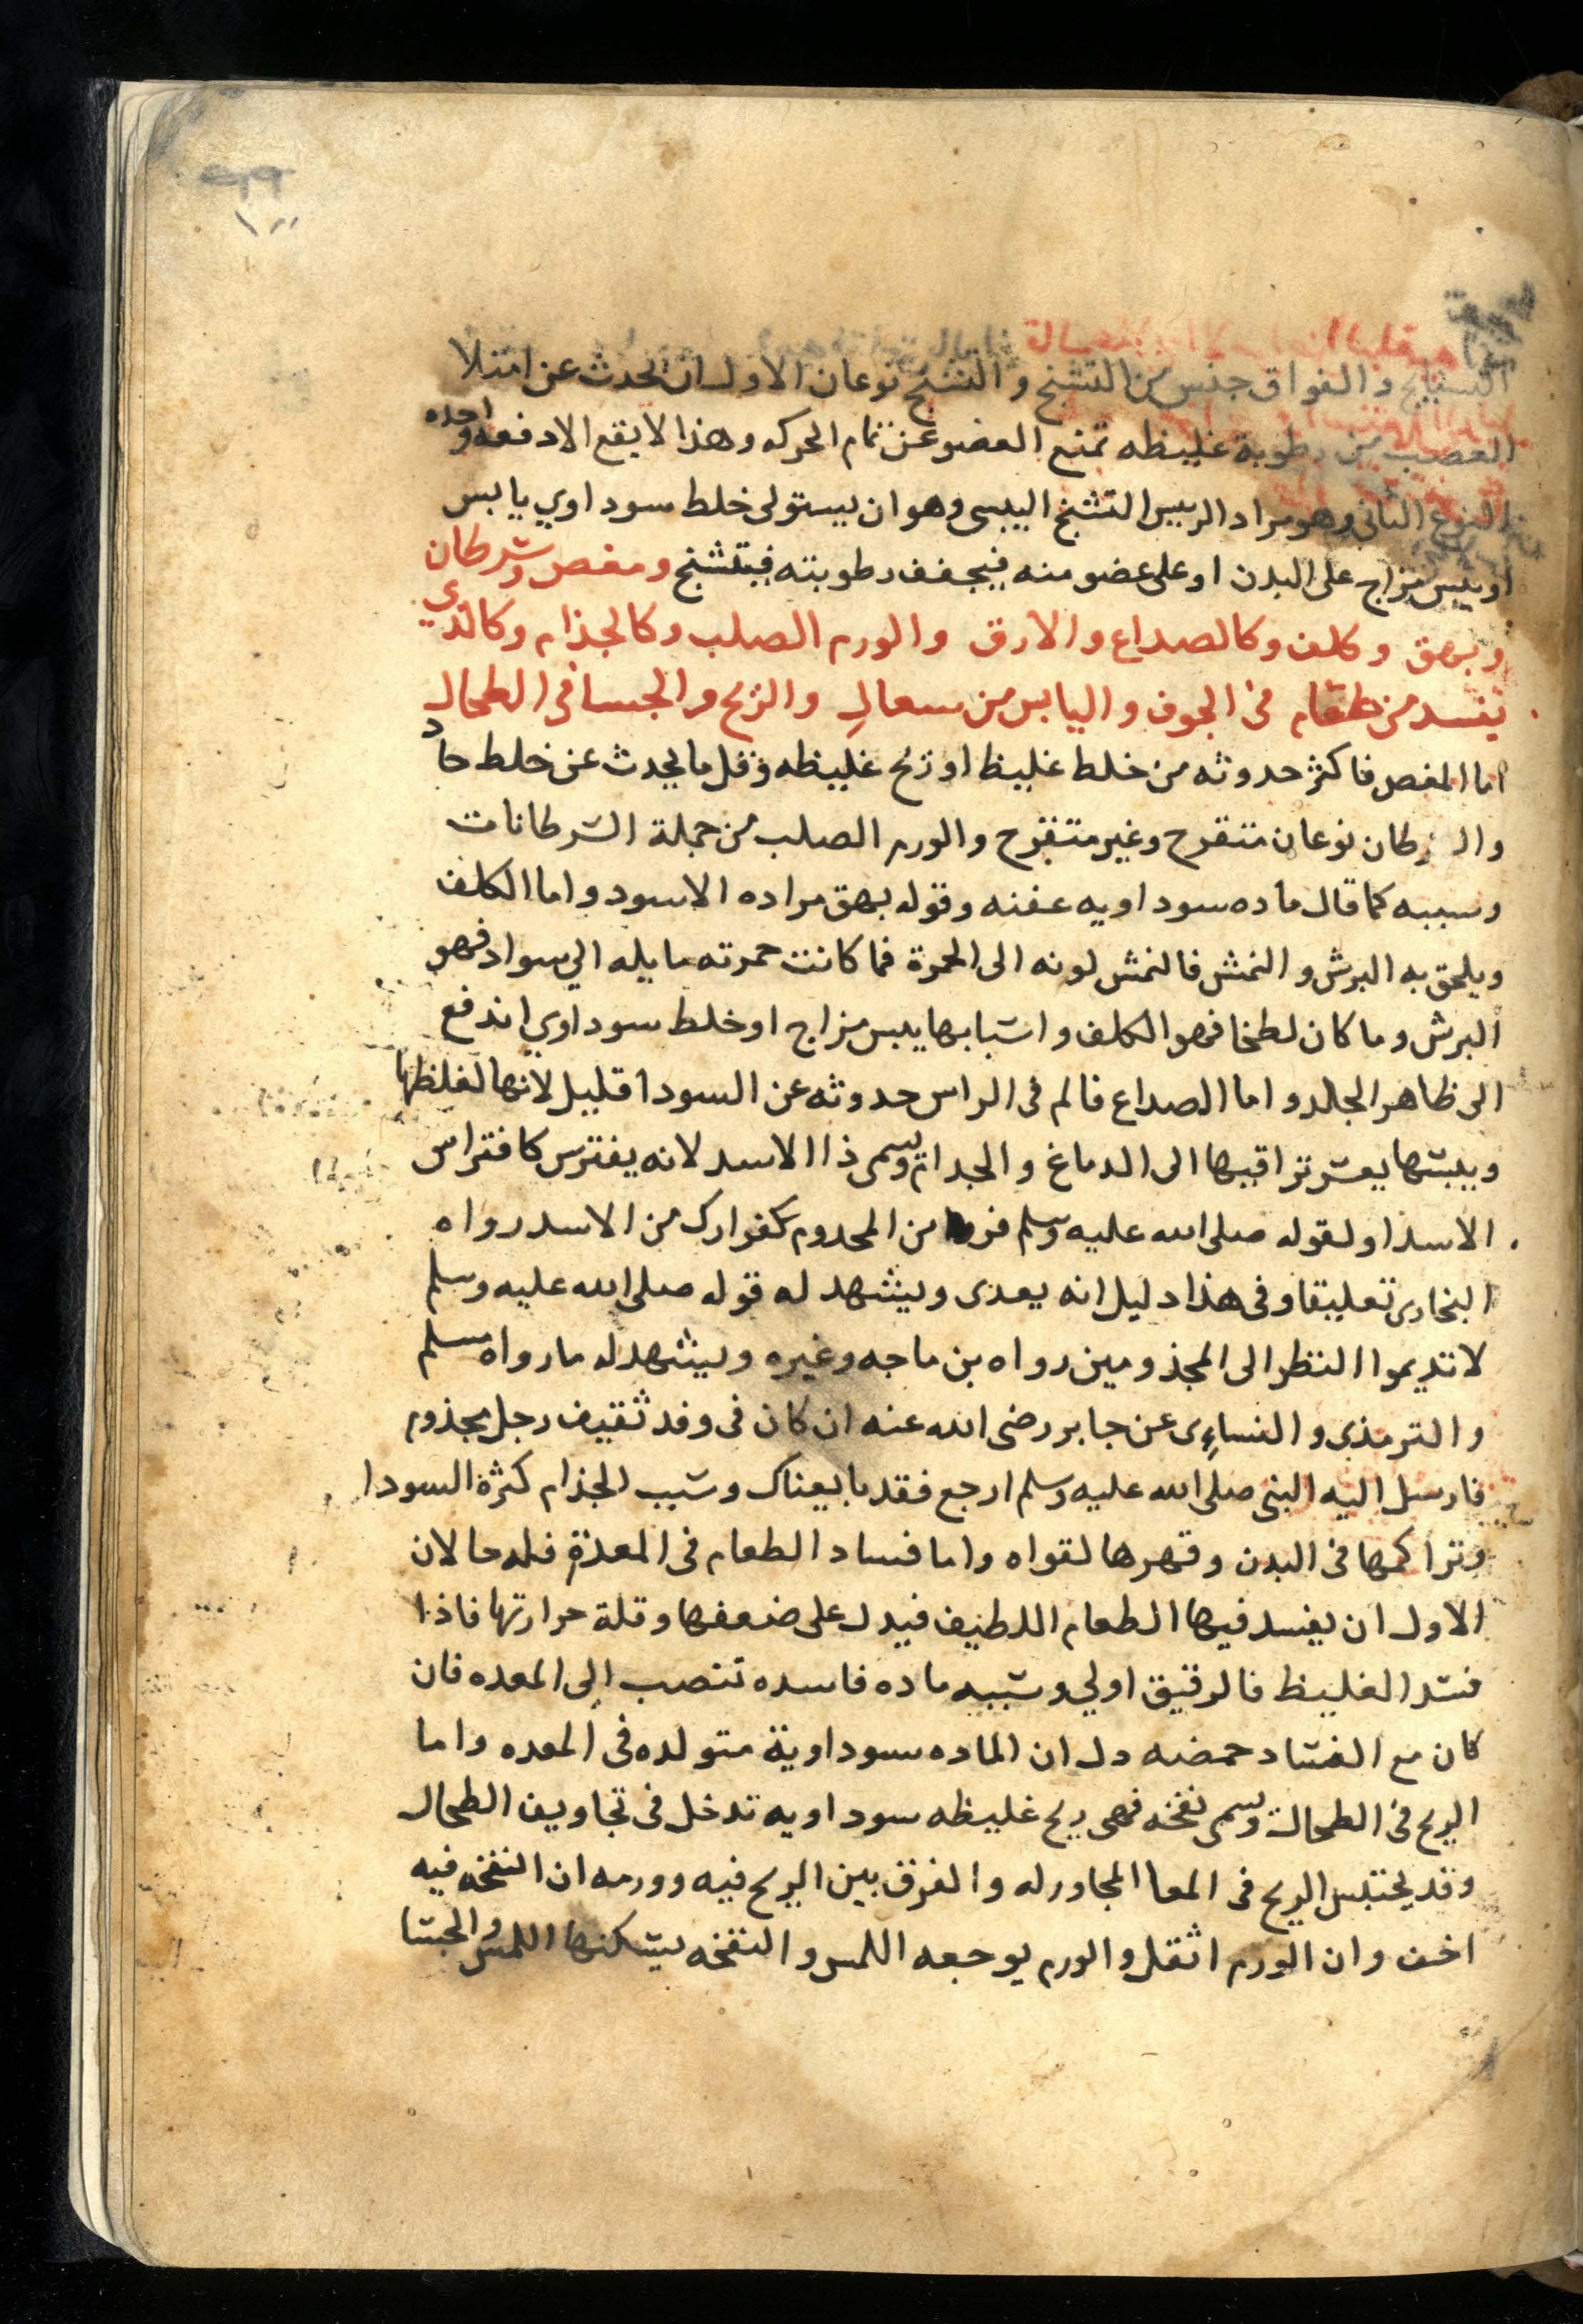 والفواق جنس من التشنج والتشنج نوعان الاول ان يحدث عن امتلا
العصب من رطوبة غليظه تمنع العضو عن تمام الحركه وهذا لا يقع الا دفعه واحده
النوع الثاني وهو مراد الرييس التشنج اليبسى وهو ان يستولى خلط سوداوي يابس
او يبس مزاج على البدن او على عضو منه فيجفف رطوبته فيتشنج ومغص وسرطان
وبهق وكلف وكالصداع والارق والورم الصلب وكالجذام وكالذي
يفسد من طعام في الجوف واليابس من سعال والريح والجسا في الطحال
اما المغص فاكثر حدوثه من خلط غليظ او ريح غليظه وقل ما يحدث عن خلط حاد
والسرطان نوعان متقرح وغير متقرح والورم الصلب من جملة السرطانات
وسببه كما قال ماده سوداويه عفنه وقوله بهق مراده الاسود واما الكلف
ويلحق به البرش والنمش فالنمش لونه الى الحمرة فما كانت حمرته مايله الي سواد فهو
البرش وما كان لطخا فهو الكلف واسبابها يبس مزاج او خلط سوداوي اندفع
الى ظاهر الجلد واما الصداع فالم فى الراس حدوثه عن السودا قليل لانها لغلظها
ويبسها يعسر تراقيها الى الدماغ والجدام ويسمى ذا الاسد لانه يفترس كافتراس
الاسد او لقوله صلى الله عليه وسلم فر من المجدوم كفرارك من الاسد رواه
البخارى تعليقا وفى هذا دليل انه يعدى ويشهد له قوله صلى الله عليه وسلم
لا تديموا النظر الى المجذومين رواه بن ماجه وغيره ويشهد له ما رواه مسلم
والترمذي والنساءى عن جابر رضى الله عنه ان كان فى وفد ثقيف رجل مجذوم
فارسل اليه النبى صلى الله عليه وسلم ارجع فقد بايعناك وسبب الجذام كثرة السودا
وتراكمها فى البدن وقهرها لقواه واما فساد الطعام فى المعدة فله حالان
الاول ان يفسد فيها الطعام اللطيف فيدل على ضعفها وقلة حرارتها فاذا
فسد الغليظ فالرقيق اولي وسببه ماده فاسده تنصب الى المعده فان
كان مع الفساد حمضه دل ان الماده سوداوية متولده فى المعده واما
الريح فى الطحال ويسمى نفخه فهى ريح غليظه سوداويه تدخل فى تجاويف الطحال
وقد يحتبس الريح فى المعا المجاور له والفرق بين الريح فيه وورمه ان النفخه فيه
اخف وان الورم اثقل والورم يوجعه اللمس والنفخه يسكنها اللمس والجسا